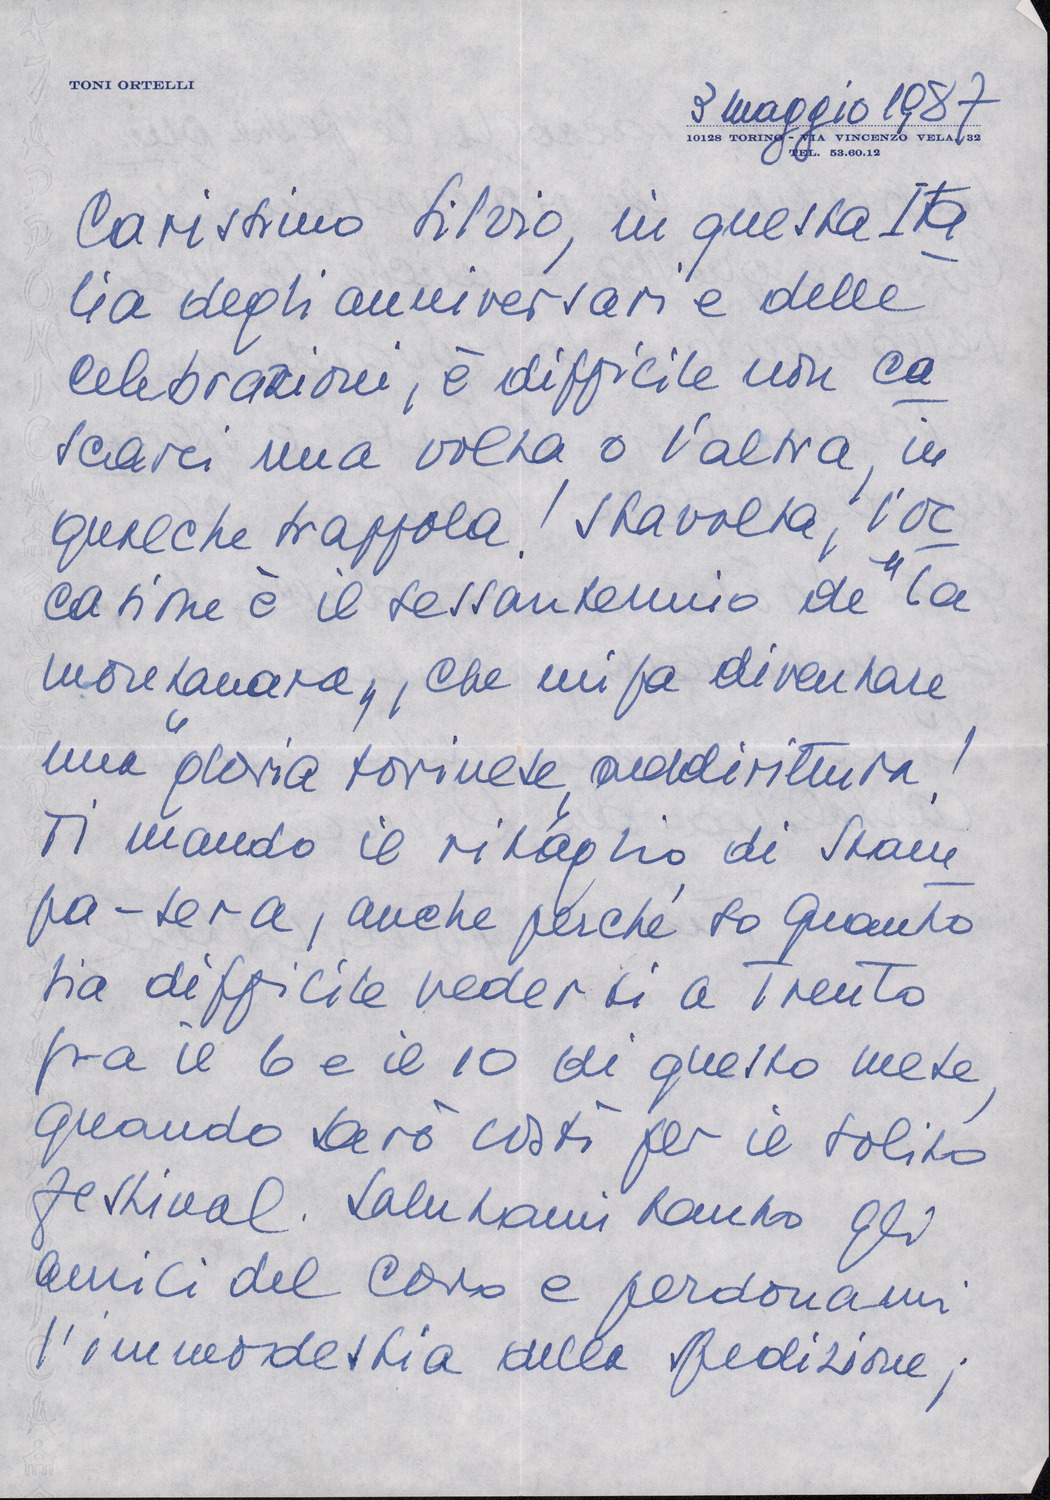 TONI ORTELLI
3 maggio 1987
10128 TORINO - VIA VINCENZO VELA, 32
TEL. 53.60.12
Carissimo Silvio, in questa Ita
lia degli anniversari e delle
celebrazioni, è difficile non ca
scarci una volta o l'altra, in
qualche trappola! Stavolta, l'oc
casione è il sessantennio de "la
montanara", che mi fa diventare
una "gloria torinese" addirittura!
Ti mando il ritaglio di Stam
pa-sera, anche perché so quanto
sia difficile vedersi a Trento
fra il 6 e il 10 di questo mese,
quando sarò costì per il solito
festival. Salutami tanto gli
amici del Coro e perdonami
l'immodestia della spedizione;